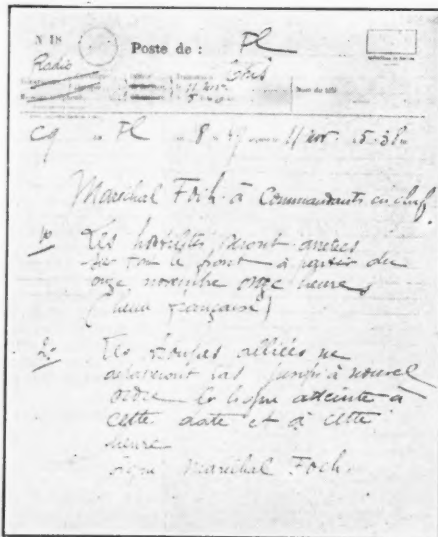 N 18 Poste de : FL
Radio
11 nov
CQ FL 8 49 11 nov 5.38
Maréchal Foch à Commandants en chef
1º Les hostilités seront arrêtées
sur tout le front à partir du
onze novembre onze heures
(heure française)
2º Les troupes alliées ne
dépasseront pas jusqu'à nouvel
ordre la ligne atteinte à
cette date et à cette
heure
signé Maréchal Foch.